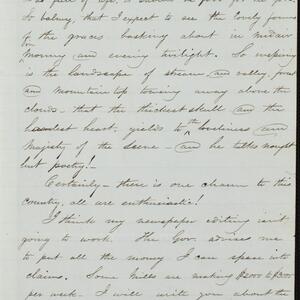 So balmy, that I expect to see the lovely forms
of the graces basking about in midair
morning and evening twilight. So inspiring
is the landscape of stream and valley, forest
and mountain top towering away above the
clouds - that the thickest skull and the
hardest heart, yields to the loveliness and
Majesty of the scene - and he talks nought
but poetry!
Certainly - there is one charm to this
country, all are enthusiastic!
I think my newspaper editing isn't
going to work. The Gov advises me
to put all the money I can spare into
claims. Some Mills are making $200 to $300
per week. I will write you about the